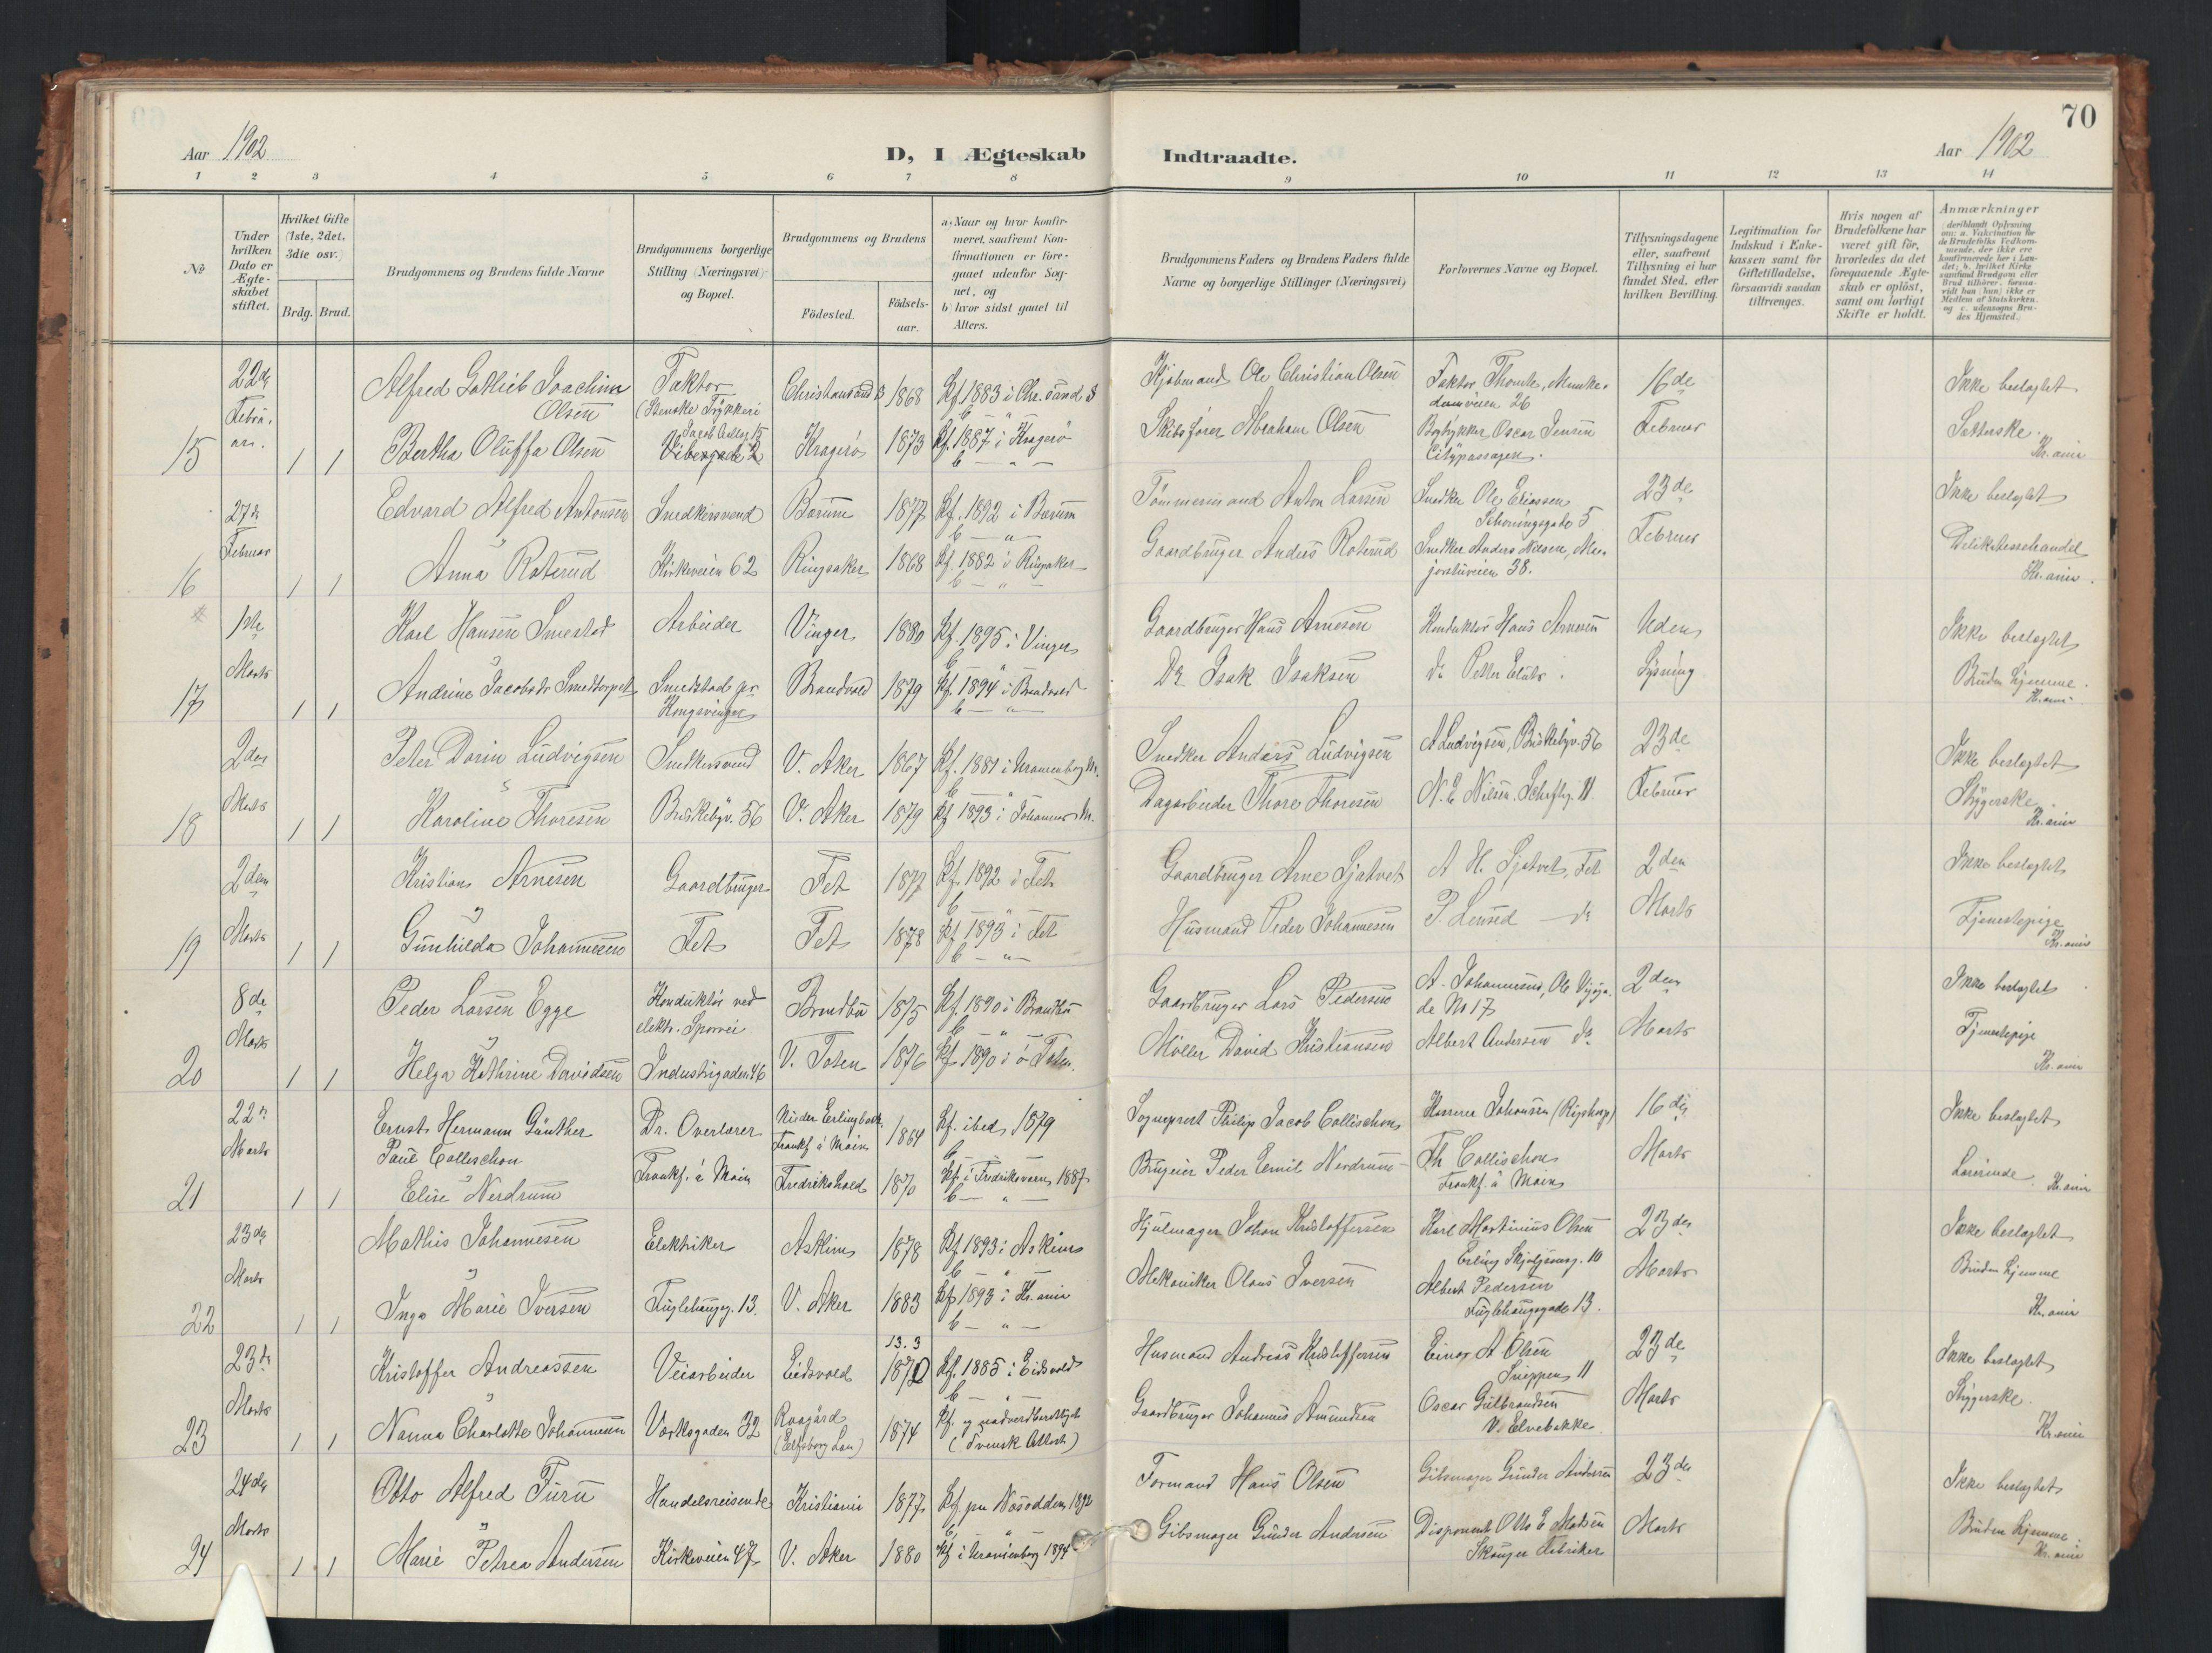 70
Aar 1902
D, I Ægteskab Indtraadte.
Aar 1902
1 2 3 4 5 6 7 8 9 10 11 12 13 14
№
Under hvilken Dato er Ægteskabet stiftet.
Hvilket Gifte (1ste, 2det, 3die osv.)
Brdg. Brud.
Brudgommens og Brudens fulde Navne
Brudgommens borgerlige Stilling (Næringsvei) og Bopæl.
Brudgommens og Brudens
Födested.
Födselsaar.
a) Naar og hvor konfirmeret, saafremt Konfirmationen er foregaaet udenfor Sognet, og
b) hvor sidst gaaet til Alters.
Brudgommens Faders og Brudens Faders fulde Navne og borgerlige Stillinger (Næringsvei)
Forlovernes Navne og Bopæl.
Tillysningsdagene eller, saafremt Tillysning ei har fundet Sted, efter hvilken Bevilling.
Legitimation for Indskud i Enkekassen samt for Giftetilladelse, forsaavidt saadan tiltrænges.
Hvis nogen af Brudefolkene har været gift før, hvorledes da det foregaaende Ægteskab er oplöst, samt om lovligt Skifte er holdt.
Anmærkninger
deriblandt Oplysning om: a. Vakcination for de Brudefolks Vedkommende, der ikke ere konfirmerede her i Landet; b. hvilket Kirkesamfund Brudgom eller Brud tilhører, forsaavidt han (hun) ikke er Medlem af Statskirken, og c. udensogns Brudes Hjemsted.
15 22de Februar. 1 1
Alfred Gotlieb Joachim Olsen
Faktor (Stenske Trykkeri
Christiansand S 1868 Kf. 1883 i Chr.sand S
b — " —
Kjøbmand Ole Christian Olsen
Faktor Thomle, Munkedamsveien 26
16de Februar
Ikke beslægtet
Bertha Oluffa Olsen
Jacob Aallsg. 15
Vibesgade 2
Kragerø 1873 Kf. 1887 i Kragerø
b — " —
Skibsfører Abraham Olsen
Bogtrykker Oscar Jensen Citypassagen.
Sætterske. Kr.ania
16 27de Februar 1 1
Edvard Alfred Antonsen
Snedkersvend
Bærum 1877 Kf. 1892 i Bærum
b — " —
Tømmermand Anton Larsen
Snedker Ole Eliassen Schøningsgade 5
23de Februar
Ikke beslægtet
Anna Roterud
Kirkeveien 62
Ringsaker 1868 Kf. 1882 i Ringsaker
b — " —
Gaardbruger Anders Roterud
Snedker Anders Nilsen, Majorstuveien 38.
Delikatessehandel Kr.ania.
17 1ste Marts 1 1
Karl Hansen Smestad
Arbeider
Vinger 1880 Kf. 1895 i Vinger
b — " —
Gaardbruger Hans Arnesen
Konduktør Hans Arnesen
Uden Lysning
Ikke beslægtet
Andrine Jacobsdr Smedtorpet
Smedstad pr Kongsvinger
Brandvold 1879 Kf. 1894 i Brandvold
b — " —
Do Isak Isaksen
do Petter
Bruden hjemme. Kr.ania
18 2den Marts 1 1
Peter Dorin Ludvigsen
Snedkersvend
V. Aker 1867 Kf. 1881 i Uranienborg M.
b — " —
Snedker Anders Ludvigsen
A Ludvigsen, Briskebyv. 56
23de Februar
Ikke beslægtet
Karoline Thoresen
Briskebyv. 56
V. Aker 1879 Kf. 1893 i Johannes M.
Dagarbeider Thore Thoresen
N. E. Nilsen. Schultzg. 11
Strygerske. Kr.ania
19 2den Marts 1 1
Kristian Arnesen
Gaardbruger
Fet 1877 Kf. 1892 i Fet
b — " —
Gaardbruger Arne Sjatvet
A H. Sjatvet, Fet
2den Marts
Ikke beslægtet
Gunhilda Johannesen
Fet
Fet 1878 Kf. 1893 i Fet
b — " —
Husmand Peder Johannesen
P. — do
Tjenestepige Kr.ania
20 8de Marts 1 1
Peder Larsen Egge
Konduktør ved elektr. Sporvei
Brandbu 1875 Kf. 1890 i Brandbu
b — " —
Gaardbruger Lars Pedersen
A. Johannesen, Ole Vigsgade No 17
2den Marts
Ikke beslægtet
Helga Kathrine Davidsen
Industrigaden 46
V. Toten 1876 Kf. 1890 i ø Toten.
Møller David Kristiansen
Albert Andersen do
Tjenestepige Kr.ania
21 22de Marts 1 1
Ernst Hermann Günther Paul Collischon
Dr. Overlærer
Nieder Erlenbach Frankf. a Main 1864 Kf. ibed. 1879
b — —
Sogneprest Philip Jacob Collischon
Kasserer Johansen (Rigshosp)
16de Marts
Ikke beslægtet
Elise Nerdrum
Frankf. a Main
Fredrikshald 1870 Kf. i Fredriksværn 1887
b — " —
Brugeier Peder Emil Nerdrum
Th Collischon Frankf. a Main
Lærerinde. Kr.ania
22 23de Marts 1 1
Mathis Johannesen
Elektriker
Askim 1878 Kf. 1893 i Askim
b — " —
Hjulmager Johan Kristoffersen
Karl Martinius Olsen Erling Skjalgsonsg. 10
23de Marts
Ikke beslægtet
Inga Marie Iversen
Fuglehaugg. 13.
V. Aker 1883 Kf. 1893 i Kr.ania
b — " —
Mekaniker Olaus Iversen
Albert Pedersen Fuglehauggade 13.
Bruden hjemme Kr.ania
23 23de Marts 1 1
Kristoffer Andreassen
Veiarbeider
Eidsvold 13.3 1870 Kf. 1885 i Eidsvold
b — " —
Husmand Andreas Kristoffersen
Einar A Olsen Snippen 11
23de Marts
Ikke beslægtet
Nanna Charlotte Johannesen
Værksgaden 32
Roagård (Elfsborg Län) 1874 Kf. og nadverdberettiget (Svensk Attest)
Gaardbruger Johannes Amundsen
Oscar Gulbrandsen V. Elvebakke
Strygerske. Kr.ania
24 24de Marts 1 1
Otto Alfred Furu
Handelsreisende
Kristiania 1877 Kf. paa Næsodden 1892
b — " —
Formand Hans Olsen
Gibsmager Gunder Andersen
23de Marts
Ikke beslægtet
Marie Petrea Andersen
Kirkeveien 47
V. Aker 1880 Kf. i Uranienborg 1894
Gibsmager Gunder Andersen
Disponent Otto E Madsen Skouger Fabriker
Bruden hjemme. Kr.ania